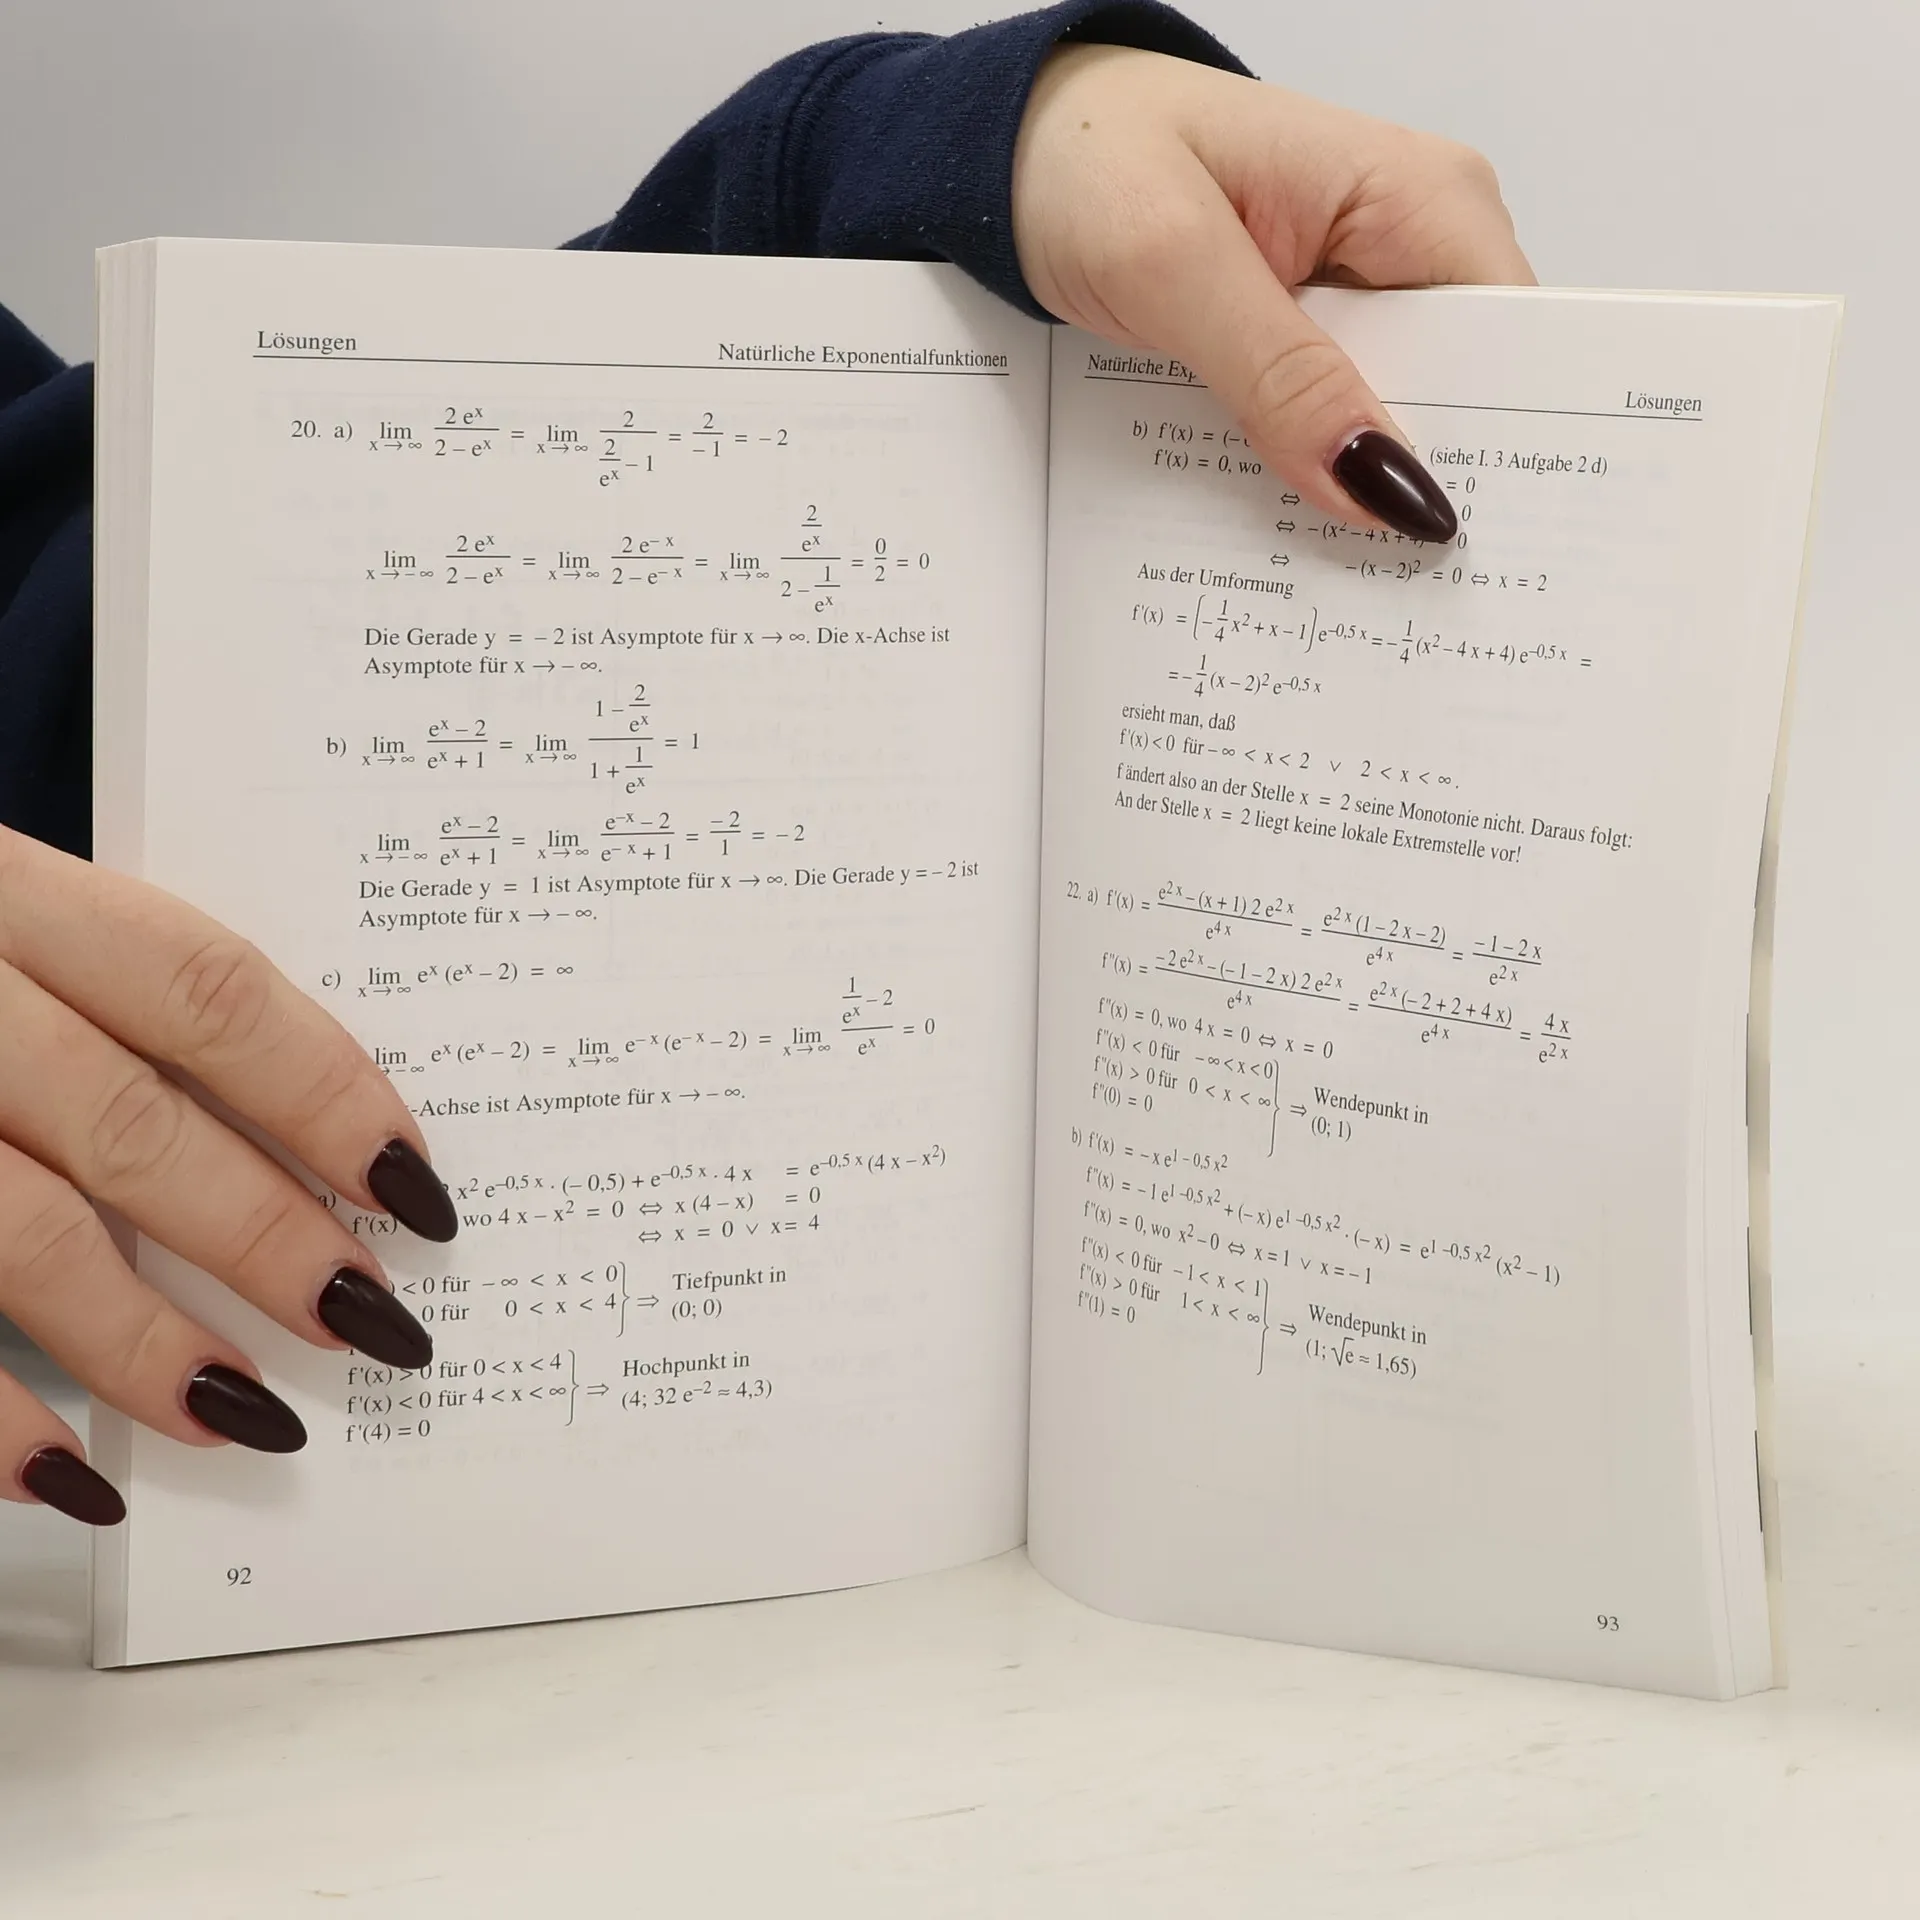 Lösungen
Natürliche Exponentialfunktionen
20. a) lim x→∞ 2 e^x / (2 – e^x) = lim x→∞ 2 / (2/e^x – 1) = 2/–1 = – 2
lim x→–∞ 2 e^x / (2 – e^x) = lim x→∞ 2 e^–x / (2 – e^–x) = lim x→∞ (2/e^x) / (2 – 1/e^x) = 0/2 = 0
Die Gerade y = – 2 ist Asymptote für x → ∞. Die x-Achse ist
Asymptote für x → – ∞.
b) lim x→∞ (e^x – 2) / (e^x + 1) = lim x→∞ (1 – 2/e^x) / (1 + 1/e^x) = 1
lim x→–∞ (e^x – 2) / (e^x + 1) = lim x→∞ (e^–x – 2) / (e^–x + 1) = –2/1 = – 2
Die Gerade y = 1 ist Asymptote für x → ∞. Die Gerade y = – 2 ist
Asymptote für x → – ∞.
c) lim x→∞ e^x (e^x – 2) = ∞
lim →–∞ e^x (e^x – 2) = lim x→∞ e^–x (e^–x – 2) = lim x→∞ (1/e^x – 2) / e^x = 0
-Achse ist Asymptote für x → – ∞.
a) x² e^–0,5 x · (– 0,5) + e^–0,5 x · 4 x = e^–0,5 x (4 x – x²)
f'(x) wo 4 x – x² = 0 ⇔ x (4 – x) = 0
⇔ x = 0 ∨ x = 4
) < 0 für – ∞ < x < 0
0 für 0 < x < 4 } ⇒ Tiefpunkt in (0; 0)
f'(x) > 0 für 0 < x < 4
f'(x) < 0 für 4 < x < ∞ } ⇒ Hochpunkt in (4; 32 e^–2 ≈ 4,3)
f'(4) = 0
92
Natürliche Exp
Lösungen
b) f'(x) = (– (siehe I. 3 Aufgabe 2 d)
f'(x) = 0, wo = 0
⇔ 0
⇔ – (x² – 4 x + 0
⇔ – (x – 2)² = 0 ⇔ x = 2
Aus der Umformung
f'(x) = (– 1/4 x² + x – 1) e^–0,5 x = – 1/4 (x² – 4 x + 4) e^–0,5 x =
= – 1/4 (x – 2)² e^–0,5 x
ersieht man, daß
f'(x) < 0 für – ∞ < x < 2 ∨ 2 < x < ∞.
f ändert also an der Stelle x = 2 seine Monotonie nicht. Daraus folgt:
An der Stelle x = 2 liegt keine lokale Extremstelle vor!
22. a) f'(x) = (e^2 x – (x + 1) 2 e^2 x) / e^4 x = e^2 x (1 – 2 x – 2) / e^4 x = (– 1 – 2 x) / e^2 x
f''(x) = (– 2 e^2 x – (– 1 – 2 x) 2 e^2 x) / e^4 x = e^2 x (– 2 + 2 + 4 x) / e^4 x = 4 x / e^2 x
f''(x) = 0, wo 4 x = 0 ⇔ x = 0
f''(x) < 0 für – ∞ < x < 0
f''(x) > 0 für 0 < x < ∞ } ⇒ Wendepunkt in (0; 1)
f''(0) = 0
b) f'(x) = – x e^1 – 0,5 x²
f''(x) = – 1 e^1 – 0,5 x² + (– x) e^1 – 0,5 x² · (– x) = e^1 – 0,5 x² (x² – 1)
f''(x) = 0, wo x² – 0 ⇔ x = 1 ∨ x = – 1
f''(x) < 0 für – 1 < x < 1
f''(x) > 0 für 1 < x < ∞ } ⇒ Wendepunkt in (1; √e ≈ 1,65)
f''(1) = 0
93